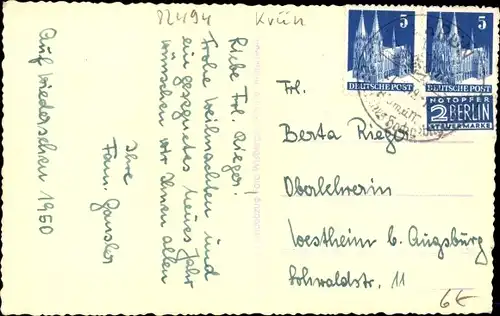 82494
Krün
Liebe Frl. Rieger!
Frohe Weihnachten und
ein gesegnetes neues Jahr
wünschen wir Ihnen allen
Ihre
Fam. Gansler
Auf Wiedersehen 1950
5
DEUTSCHE POST
5
DEUTSCHE POST
NOTOPFER
2 BERLIN
STEUERMARKE
Frl.
Berta Rieger
Oberlehrerin
Westheim b. Augsburg
Lohwaldstr. 11
6€